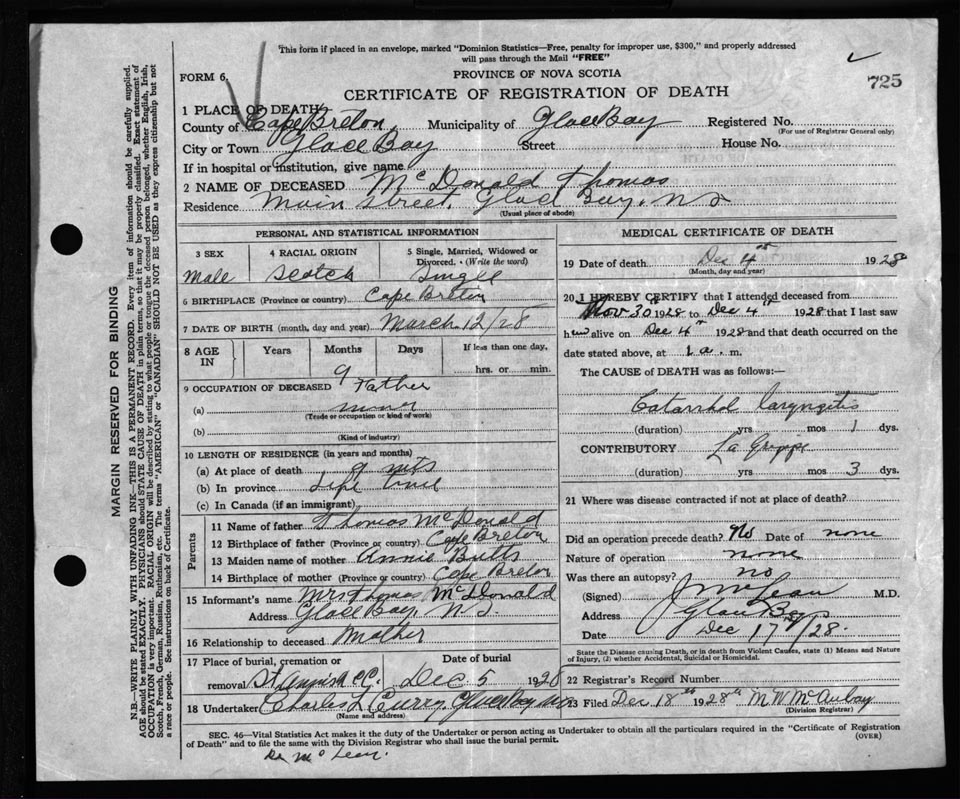 This form if placed in an envelope, marked "Dominion Statistics—Free, penalty for improper use, $300," and properly addressed
will pass through the Mail "FREE"
FORM 6.
PROVINCE OF NOVA SCOTIA
725
CERTIFICATE OF REGISTRATION OF DEATH
1 PLACE OF DEATH
County of Cape Breton Municipality of Glace Bay Registered No.
(For use of Registrar General only)
City or Town Glace Bay Street House No.
If in hospital or institution, give name
2 NAME OF DECEASED McDonald Thomas
Residence Main Street, Glace Bay, N S
(Usual place of abode)
PERSONAL AND STATISTICAL INFORMATION
3 SEX 4 RACIAL ORIGIN 5 Single, Married, Widowed or
Divorced. (Write the word)
Male Scotch Single
6 BIRTHPLACE (Province or country) Cape Breton
7 DATE OF BIRTH (month, day and year) March 12/28
8 AGE IN Years Months Days If less than one day,
9 hrs. or min.
9 OCCUPATION OF DECEASED Father
(a) miner
(Trade or occupation or kind of work)
(b)
(Kind of industry)
10 LENGTH OF RESIDENCE (in years and months)
(a) At place of death 9 mts
(b) In province Life time
(c) In Canada (if an immigrant)
Parents
11 Name of father Thomas McDonald
12 Birthplace of father (Province or country) Cape Breton
13 Maiden name of mother Annie Butts
14 Birthplace of mother (Province or country) Cape Breton
15 Informant's name Mrs Thomas McDonald
Address Glace Bay, N.S.
16 Relationship to deceased Mother
17 Place of burial, cremation or Date of burial
removal St Anns CC. Dec 5 1928
18 Undertaker Charles L Curry, Glace Bay NS
(Name and address)
MEDICAL CERTIFICATE OF DEATH
19 Date of death Dec 4th 1928
(Month, day and year)
20 I HEREBY CERTIFY that I attended deceased from
Nov 30th 1928 to Dec 4 1928 that I last saw
him alive on Dec 4th 1928 and that death occurred on the
date stated above, at 1 a. m.
The CAUSE of DEATH was as follows:—
Catarrhal laryngitis
(duration) yrs mos 1 dys.
CONTRIBUTORY La Grippe
(duration) yrs mos 3 dys.
21 Where was disease contracted if not at place of death?
Did an operation precede death? No Date of none
Nature of operation none
Was there an autopsy? no
(Signed) J McLean M.D.
Address Glace Bay
Date Dec 17th/28.
State the Disease causing Death, or in death from Violent Causes, state (1) Means and Nature
of Injury, (2) whether Accidental, Suicidal or Homicidal.
22 Registrar's Record Number
23 Filed Dec 18th 1928 M W McAulay
(Division Registrar)
SEC. 46—Vital Statistics Act makes it the duty of the Undertaker or person acting as Undertaker to obtain all the particulars required in the "Certificate of Registration
of Death" and to file the same with the Division Registrar who shall issue the burial permit.
(OVER)
Dr McLean.
MARGIN RESERVED FOR BINDING
N.B.—WRITE PLAINLY WITH UNFADING INK—THIS IS A PERMANENT RECORD. Every item of information should be carefully supplied.
AGE should be stated EXACTLY. PHYSICIANS should STATE CAUSE OF DEATH in plain terms, so that it may be properly classified. Exact statement of
OCCUPATION is very important. RACIAL ORIGIN will be described by stating to what people or tongue the deceased person belonged, whether English, Irish,
Scotch, French, German, Russian, Ruthenian, etc. The terms "AMERICAN" or "CANADIAN" SHOULD NOT BE USED as they express citizenship but not
a race or people. See instructions on back of Certificate.